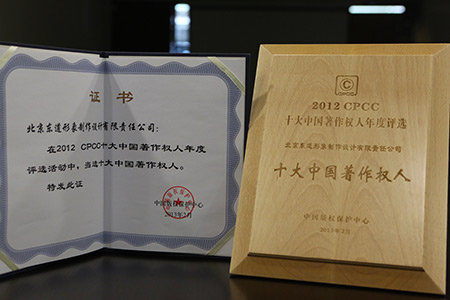 证书
北京东道形象制作设计有限责任公司:
在2012 CPCC十大中国著作权人年度
评选活动中,当选十大中国著作权人。
特发此证
中国版权保护中心
2013年2月
C
CPCC
2012 CPCC
十大中国著作权人年度评选
北京东道形象制作设计有限责任公司
十大中国著作权人
中国版权保护中心
2013年2月